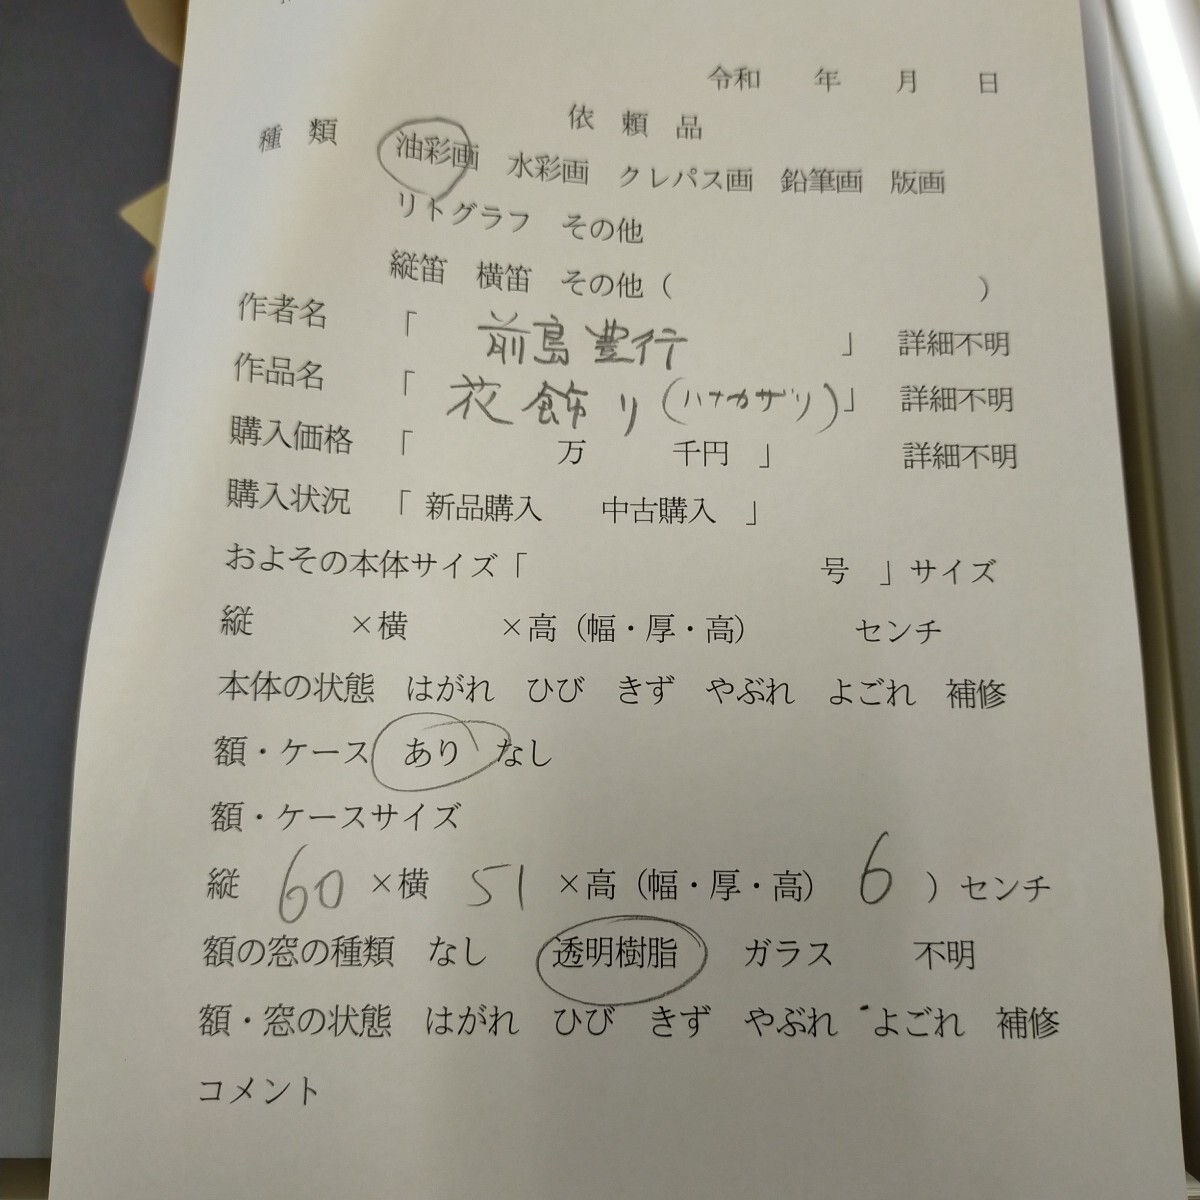 令和　　年　　月　　日
依　頼　品
種　類　油彩画　水彩画　クレパス画　鉛筆画　版画
リトグラフ　その他
縦笛　横笛　その他（　　　　　　　　　　）
作者名　「　前島豊行　　　　」　詳細不明
作品名　「　花飾り（ハナカザリ）」　詳細不明
購入価格　「　　　　万　　　千円　」　　　　詳細不明
購入状況　「　新品購入　　中古購入　」
およその本体サイズ「　　　　　　　　　号　」サイズ
縦　　　×横　　　×高（幅・厚・高）　　　センチ
本体の状態　はがれ　ひび　きず　やぶれ　よごれ　補修
額・ケース　あり　なし
額・ケースサイズ
縦　60　×横　51　×高（幅・厚・高）　6　）センチ
額の窓の種類　なし　　透明樹脂　　ガラス　　不明
額・窓の状態　はがれ　ひび　きず　やぶれ　よごれ　補修
コメント